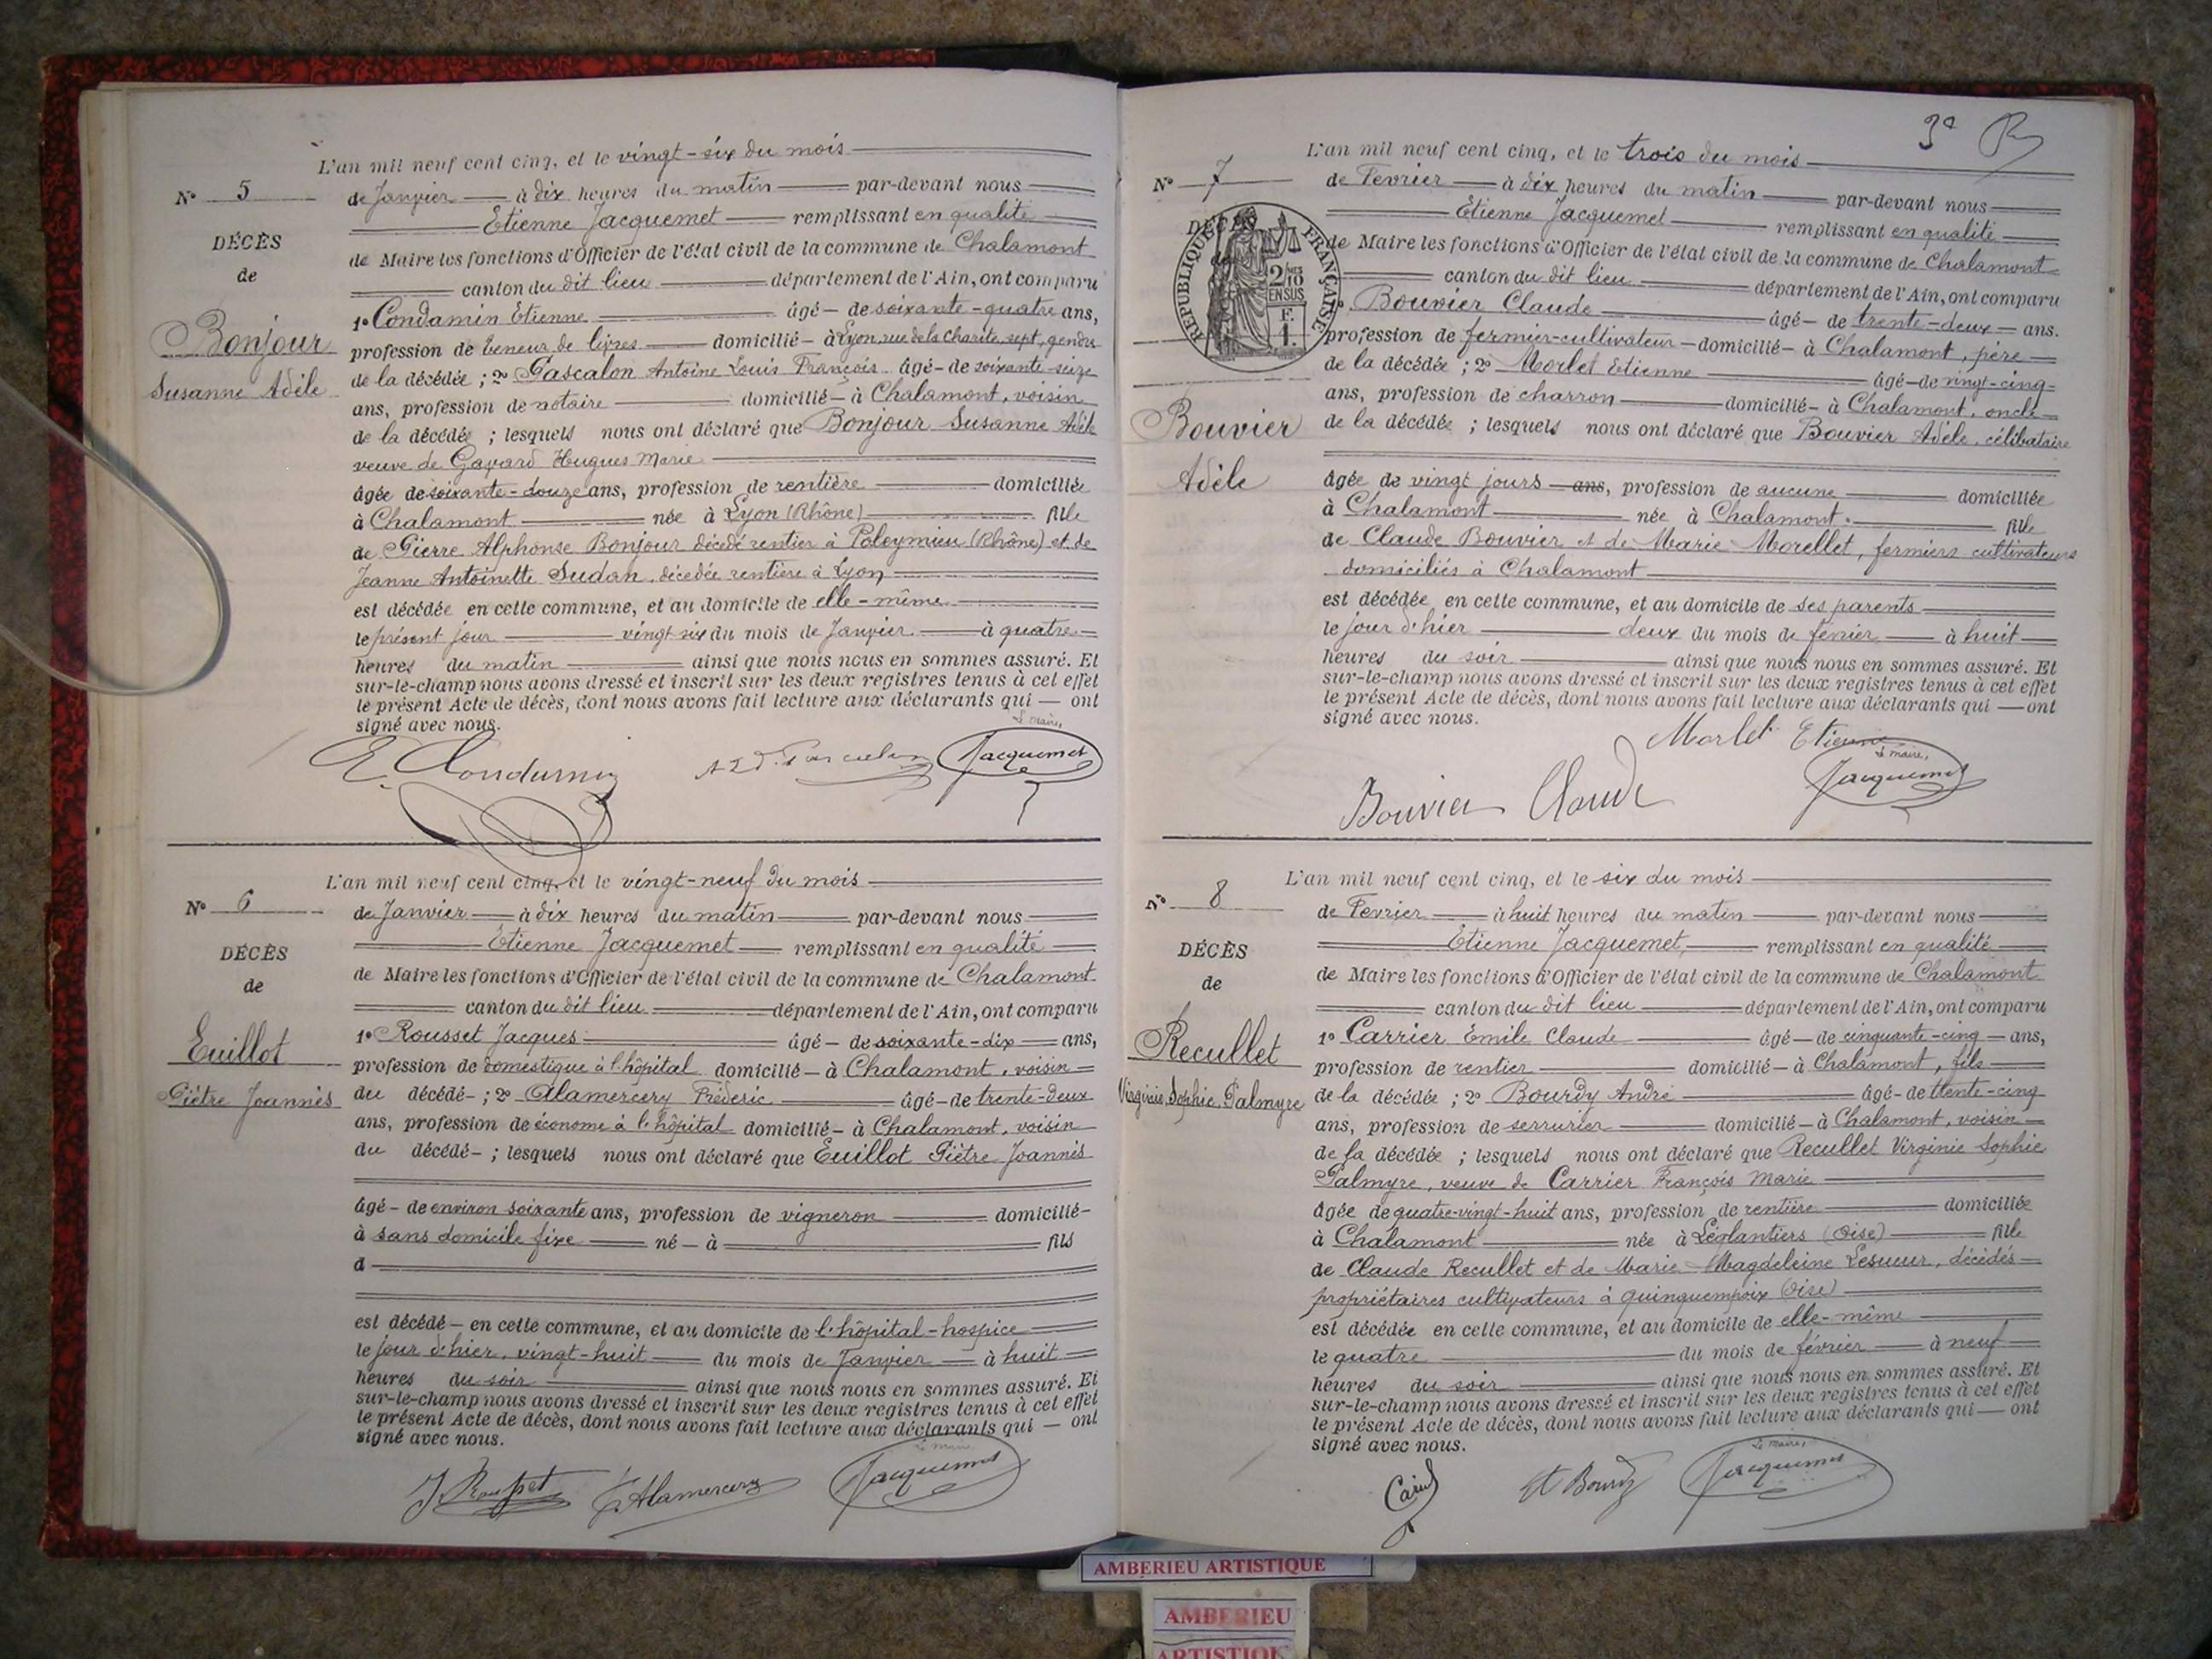 L'an mil neuf cent cinq, et le vingt-six du mois
N° 5
de Janvier à dix heures du matin par-devant nous
Etienne Jacquemet remplissant en qualité
DÉCÈS
de Maire les fonctions d'Officier de l'état civil de la commune de Chalamont
de
canton du dit lieu département de l'Ain, ont comparu
1° Condamin Etienne âgé de soixante-quatre ans,
Bonjour
profession de teneur de livres domicilié à Lyon, rue de la Charité, sept, gendre
Susanne Adèle
de la décédée ; 2° Pascalon Antoine Louis François âgé de soixante-seize
ans, profession de notaire domicilié à Chalamont, voisin
de la décédée ; lesquels nous ont déclaré que Bonjour Susanne Adèle
veuve de Gayard Hugues Marie
âgée de soixante-douze ans, profession de rentière domiciliée
à Chalamont née à Lyon (Rhône) fille
de Pierre Alphonse Bonjour décédé rentier à Poleymieu (Rhône) et de
Jeanne Antoinette Sudan, décédée rentière à Lyon
est décédée en cette commune, et au domicile de elle-même
le présent jour vingt-six du mois de Janvier à quatre
heures du matin ainsi que nous nous en sommes assuré. Et
sur-le-champ nous avons dressé et inscrit sur les deux registres tenus à cet effet
le présent Acte de décès, dont nous avons fait lecture aux déclarants qui ont
signé avec nous.
Le maire,
E. Condamin
Jacquemet
L'an mil neuf cent cinq, et le vingt-neuf du mois
N° 6
de Janvier à dix heures du matin par-devant nous
Etienne Jacquemet remplissant en qualité
DÉCÈS
de Maire les fonctions d'Officier de l'état civil de la commune de Chalamont
de
canton du dit lieu département de l'Ain, ont comparu
1° Rousset Jacques âgé de soixante-dix ans,
Euillot
profession de domestique à l'hôpital domicilié à Chalamont, voisin
Piètre Joannès
du décédé ; 2° Alamercery Fréderic âgé de trente-deux
ans, profession de économe à l'hôpital domicilié à Chalamont, voisin
du décédé ; lesquels nous ont déclaré que Euillot Piètre Joannès
âgé de environ soixante ans, profession de vigneron domicilié
à sans domicile fixe né à fils
d
est décédé en cette commune, et au domicile de l'hôpital-hospice
le jour d'hier, vingt-huit du mois de Janvier à huit
heures du soir ainsi que nous nous en sommes assuré. Et
sur-le-champ nous avons dressé et inscrit sur les deux registres tenus à cet effet
le présent Acte de décès, dont nous avons fait lecture aux déclarants qui ont
signé avec nous.
Le maire
J. Rousset F. Alamercery Jacquemet
3e
L'an mil neuf cent cinq, et le trois du mois
N° 7
de Fevrier à dix heures du matin par-devant nous
Etienne Jacquemet remplissant en qualité
DÉCÈS
RÉPUBLIQUE FRANÇAISE
2/10 EN SUS
F. 1.
de Maire les fonctions d'Officier de l'état civil de la commune de Chalamont
canton du dit lieu département de l'Ain, ont comparu
Bouvier Claude âgé de trente-deux ans.
profession de fermier-cultivateur domicilié à Chalamont, père
de la décédée ; 2° Morlet Etienne âgé de vingt-cinq
ans, profession de charron domicilié à Chalamont, oncle
Bouvier
de la décédée ; lesquels nous ont déclaré que Bouvier Adèle, célibataire
Adèle
âgée de vingt jours ans, profession de aucune domiciliée
à Chalamont née à Chalamont fille
de Claude Bouvier et de Marie Morellet, fermiers cultivateurs
domiciliés à Chalamont
est décédée en cette commune, et au domicile de ses parents
le jour d'hier deux du mois de février à huit
heures du soir ainsi que nous nous en sommes assuré. Et
sur-le-champ nous avons dressé et inscrit sur les deux registres tenus à cet effet
le présent Acte de décès, dont nous avons fait lecture aux déclarants qui ont
signé avec nous.
Morlet Etienne
Le maire,
Bouvier Claude Jacquemet
L'an mil neuf cent cinq, et le six du mois
N° 8
de Fevrier à huit heures du matin par-devant nous
Etienne Jacquemet, remplissant en qualité
DÉCÈS
de Maire les fonctions d'Officier de l'état civil de la commune de Chalamont
de
canton du dit lieu département de l'Ain, ont comparu
1° Carrier Emile Claude âgé de cinquante-cinq ans,
Recullet
profession de rentier domicilié à Chalamont, fils
Virginie, Sophie, Palmyre
de la décédée ; 2° Bourdy André âgé de trente-cinq
ans, profession de serrurier domicilié à Chalamont, voisin
de la décédée ; lesquels nous ont déclaré que Recullet Virginie Sophie
Palmyre, veuve de Carrier François Marie
âgée de quatre-vingt-huit ans, profession de rentière domiciliée
à Chalamont née à Léglantiers (Oise) fille
de Claude Recullet et de Marie Magdeleine Lesueur, décédés
propriétaires cultivateurs à Quinquempoix (Oise)
est décédée en cette commune, et au domicile de elle-même
le quatre du mois de février à neuf
heures du soir ainsi que nous nous en sommes assuré. Et
sur-le-champ nous avons dressé et inscrit sur les deux registres tenus à cet effet
le présent Acte de décès, dont nous avons fait lecture aux déclarants qui ont
signé avec nous.
Le maire,
Jacquemet
AMBERIEU ARTISTIQUE
AMBERIEU
ARTISTIQUE